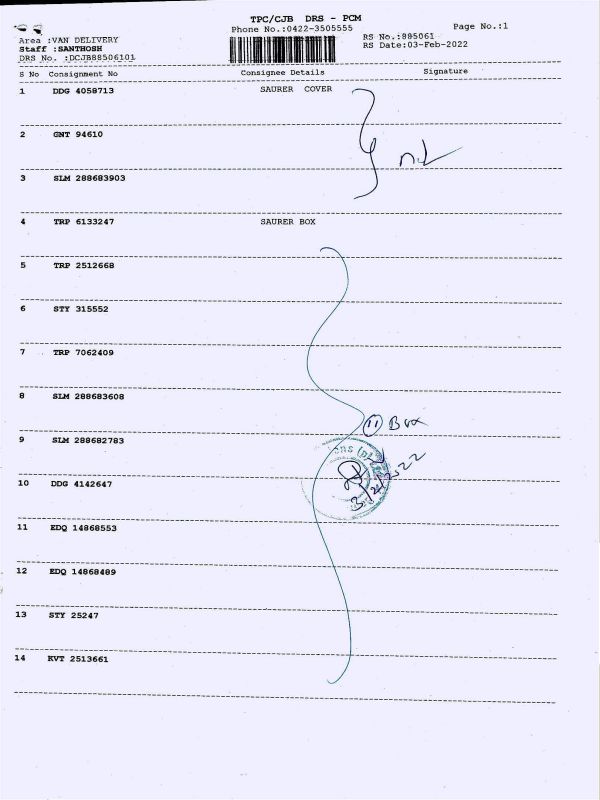 TPC/CJB DRS - PCM
Phone No.:0422-3505555
Page No.:1
RS No.:885061
RS Date:03-Feb-2022
Area :VAN DELIVERY
Staff :SANTHOSH
DRS No. :DCJB88506101
S No Consignment No Consignee Details Signature
1 DDG 4058713 SAURER COVER
2 GNT 94610
3 SLM 288683903
4 TRP 6133247 SAURER BOX
5 TRP 2512668
6 STY 315552
7 TRP 7062409
8 SLM 288683608
11 Box
9 SLM 288682783
3/2/2022
10 DDG 4142647
11 EDQ 14868553
12 EDQ 14868489
13 STY 25247
14 KVT 2513661